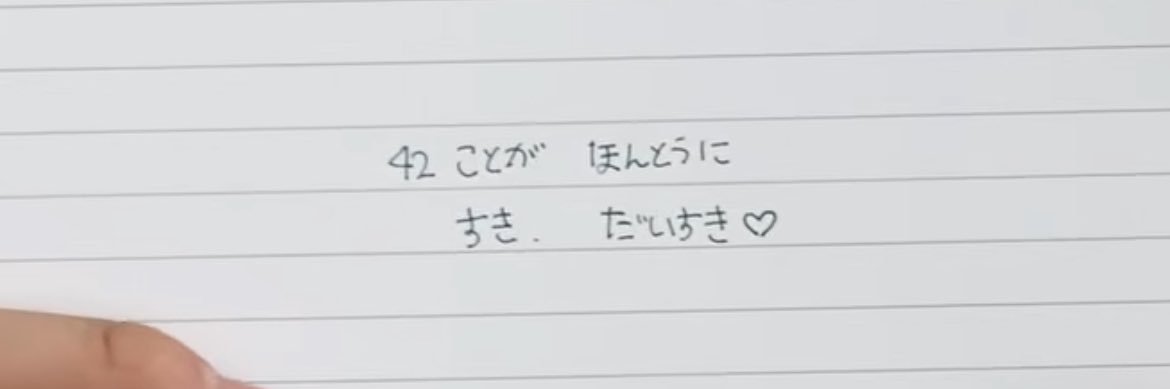 42 ことが ほんとうに
すき. だいすき♡